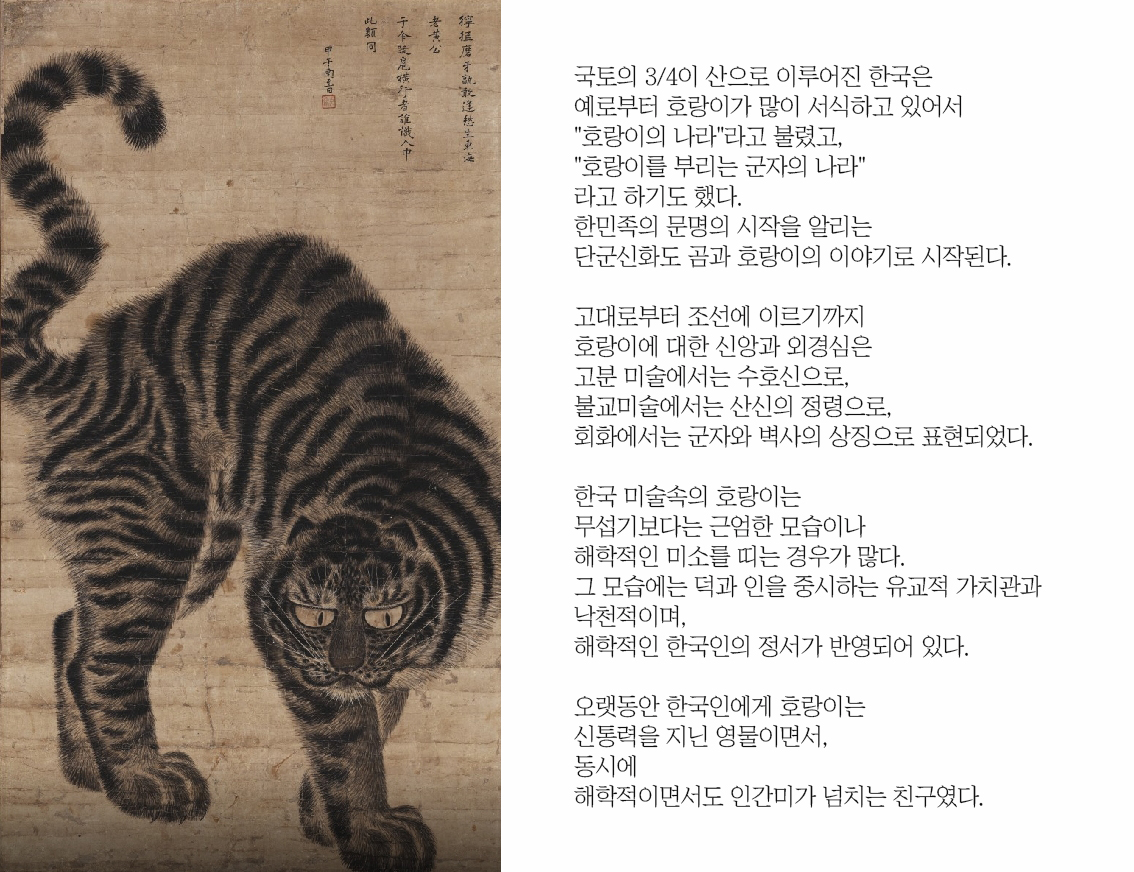 獰猛磨牙孰敢逢愁生東海
老黃公
于今跋扈橫行者誰識人中
此類同
甲午南
국토의 3/4이 산으로 이루어진 한국은
예로부터 호랑이가 많이 서식하고 있어서
"호랑이의 나라"라고 불렸고,
"호랑이를 부리는 군자의 나라"
라고 하기도 했다.
한민족의 문명의 시작을 알리는
단군신화도 곰과 호랑이의 이야기로 시작된다.
고대로부터 조선에 이르기까지
호랑이에 대한 신앙과 외경심은
고분 미술에서는 수호신으로,
불교미술에서는 산신의 정령으로,
회화에서는 군자와 벽사의 상징으로 표현되었다.
한국 미술속의 호랑이는
무섭기보다는 근엄한 모습이나
해학적인 미소를 띠는 경우가 많다.
그 모습에는 덕과 인을 중시하는 유교적 가치관과
낙천적이며,
해학적인 한국인의 정서가 반영되어 있다.
오랫동안 한국인에게 호랑이는
신통력을 지닌 영물이면서,
동시에
해학적이면서도 인간미가 넘치는 친구였다.